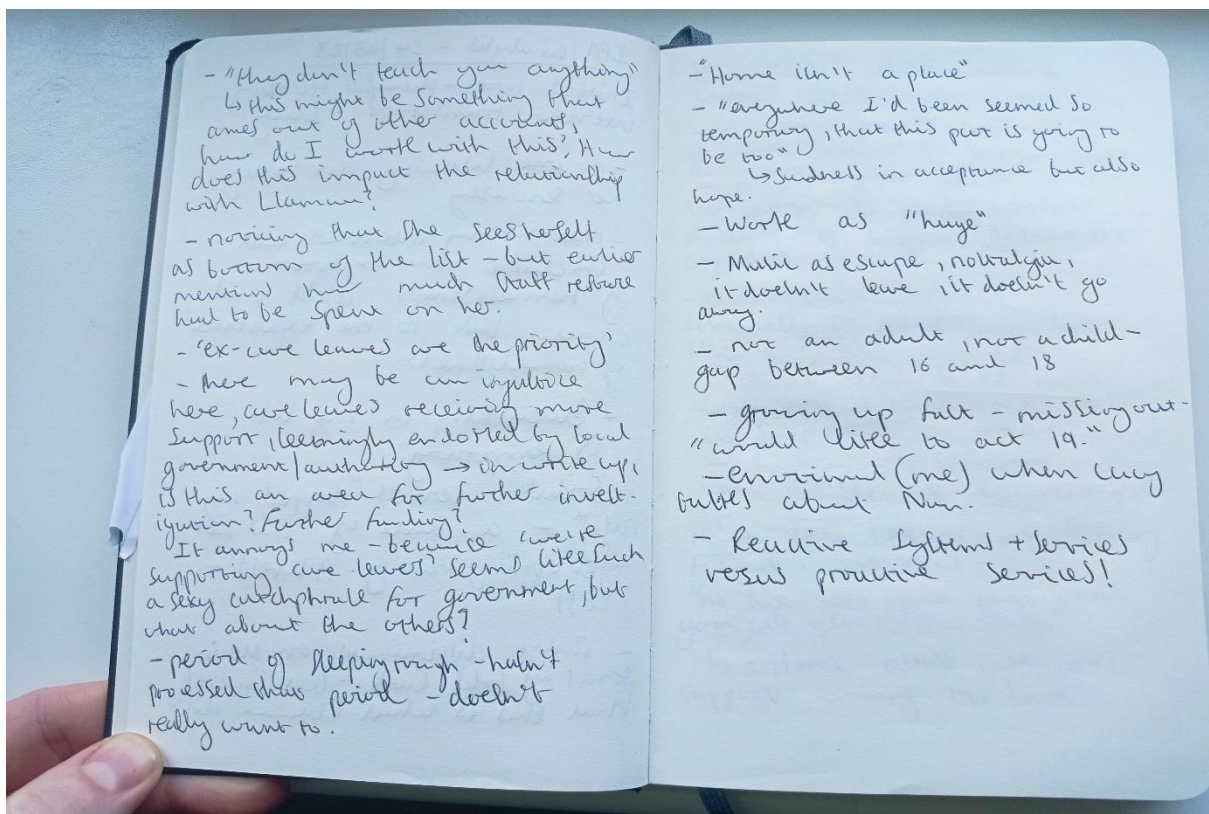 - "they don't teach you anything"
↳ this might be something that
comes out of other accounts,
how do I work with this? How
does this impact the relationship
with Llamau?
- noticing that she sees herself
as bottom of the list - but earlier
mentions how much staff resource
had to be spent on her.
- 'ex-care leaves are the priority'
- there may be an injustice
here, care leavers receiving more
support, seemingly endorsed by local
government/authority → in write up,
is this an area for further invest-
igation? Further funding?
It annoys me - because 'we're
supporting care leavers' seems like such
a sexy catchphrase for government, but
what about the others?
- period of sleeping rough - hasn't
processed that period - doesn't
really want to.
- "Home isn't a place"
- "everywhere I'd been seemed so
temporary, that this part is going to
be too"
↳ Sadness in acceptance but also
hope.
- Work as "huge"
- Music as escape, nostalgia,
it doesn't leave, it doesn't go
away.
- not an adult, not a child -
gap between 16 and 18
- growing up fast - missing out -
"would like to act 19."
- emotional (me) when Lucy
talks about Nan.
- Reactive systems + services
versus proactive services!